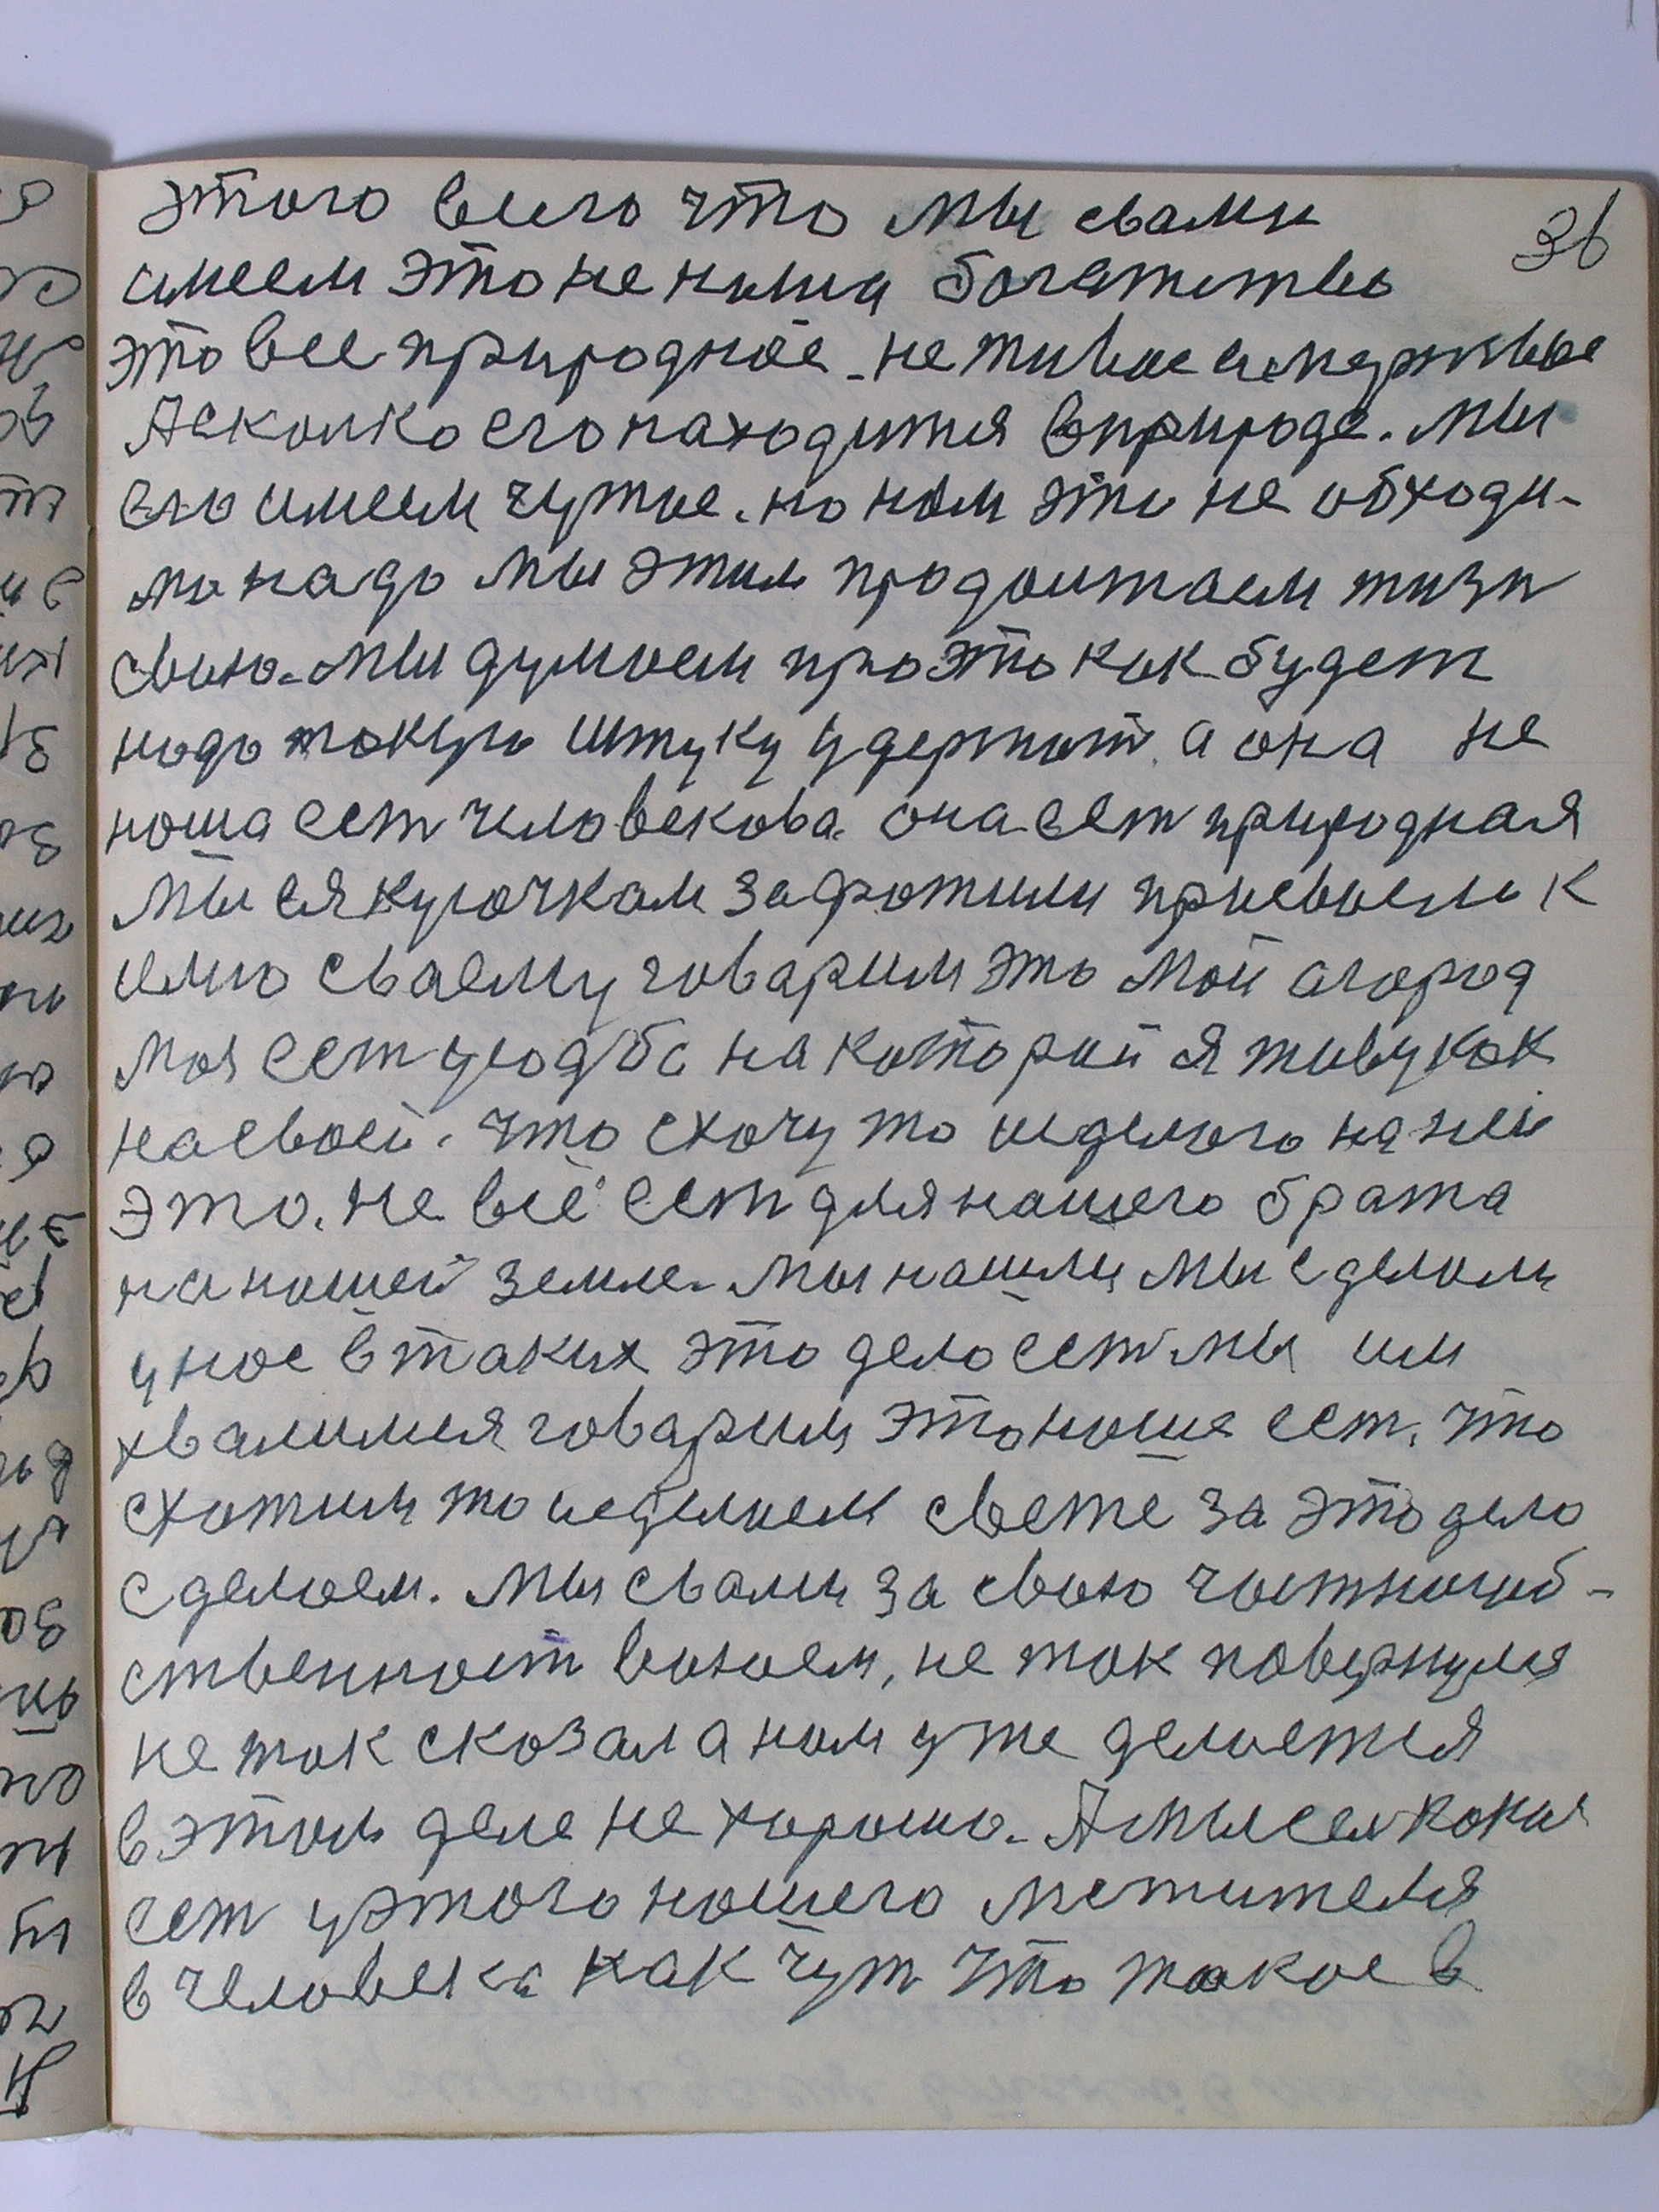 36
этого всего что мы свами
имеем это не наша богатство
это все природное. не живое и мертвое
А сколко его находится вприроде. мы
его имеем чужое. но нам это не обходи-
мо надо мы этим продолжаем жизн
свою. мы думаем про это как будет
надо такую штуку удержат. а она не
наша сет человекова. она сет природная
мы ея кусочкам захотили присвоели к
имю сваему говарим это мой агород
моя сет усодба на которой я живу как
насвоей. что схочу то изделаю на ней
это. не всё сет для нашего брата
на нашей земле. мы нашли мы сделали
у нас в таких это дело сет мы им
хвалимся говарим это наше сет. что
схотим то изделаем свете за это дело
сделаем. мы свами за свою частнособ-
ственност воюем, не так повернулся
не так сказал а нам уже делается
в этом деле не хорошо. А мысел кокая
сет уэтого нашего мстителя
в человека как чут что такое в